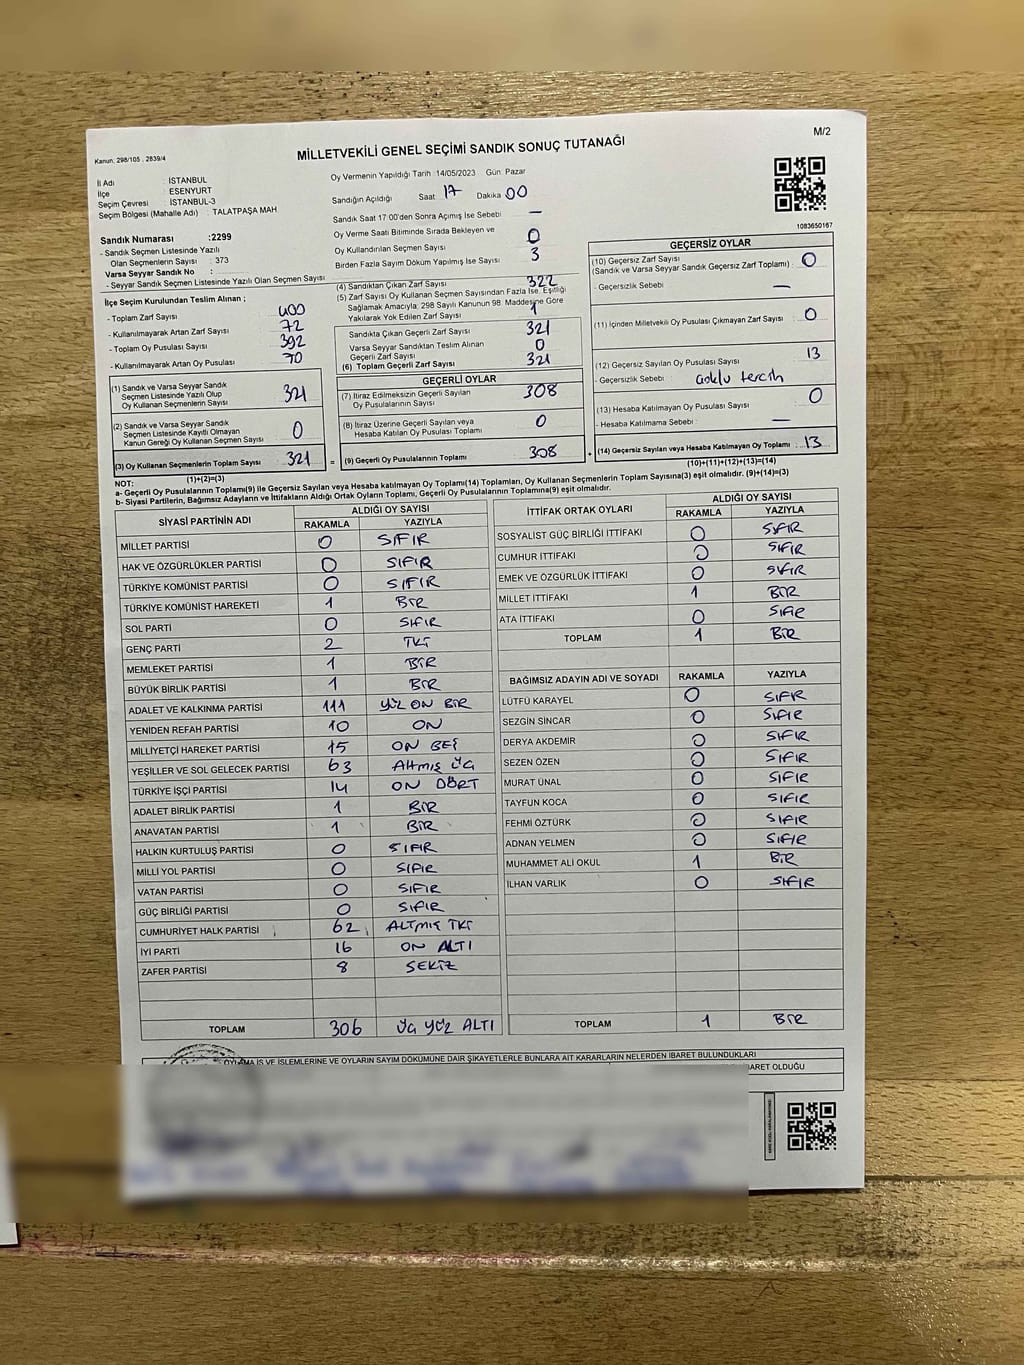 M/2
Kanun, 298/105 , 2839/4
MİLLETVEKİLİ GENEL SEÇİMİ SANDIK SONUÇ TUTANAĞI
İl Adı : İSTANBUL
İlçe : ESENYURT
Seçim Çevresi : İSTANBUL-3
Seçim Bölgesi (Mahalle Adı) : TALATPAŞA MAH
Sandık Numarası :2299
- Sandık Seçmen Listesinde Yazılı
Olan Seçmenlerin Sayısı : 373
Varsa Seyyar Sandık No :
- Seyyar Sandık Seçmen Listesinde Yazılı Olan Seçmen Sayısı
İlçe Seçim Kurulundan Teslim Alınan ;
- Toplam Zarf Sayısı 400
- Kullanılmayarak Artan Zarf Sayısı 72
- Toplam Oy Pusulası Sayısı 392
- Kullanılmayarak Artan Oy Pusulası 70
(1) Sandık ve Varsa Seyyar Sandık
Seçmen Listesinde Yazılı Olup
Oy Kullanan Seçmenlerin Sayısı 321
(2) Sandık ve Varsa Seyyar Sandık
Seçmen Listesinde Kayıtlı Olmayan
Kanun Gereği Oy Kullanan Seçmen Sayısı 0
(3) Oy Kullanan Seçmenlerin Toplam Sayısı 321
(1)+(2)=(3)
Oy Vermenin Yapıldığı Tarih :14/05/2023 Gün: Pazar
Sandığın Açıldığı Saat 17 Dakika 00
Sandık Saat 17:00'den Sonra Açılmış İse Sebebi —
Oy Verme Saati Bitiminde Sırada Bekleyen ve
Oy Kullandırılan Seçmen Sayısı 0
Birden Fazla Sayım Döküm Yapılmış İse Sayısı 3
(4) Sandıktan Çıkan Zarf Sayısı 322
(5) Zarf Sayısı Oy Kullanan Seçmen Sayısından Fazla İse, Eşitliği
Sağlamak Amacıyla; 298 Sayılı Kanunun 98. Maddesine Göre
Yakılarak Yok Edilen Zarf Sayısı 1
Sandıkta Çıkan Geçerli Zarf Sayısı 321
Varsa Seyyar Sandıktan Teslim Alınan
Geçerli Zarf Sayısı 0
(6) Toplam Geçerli Zarf Sayısı 321
GEÇERLİ OYLAR
(7) İtiraz Edilmeksizin Geçerli Sayılan
Oy Pusulalarının Sayısı 308
(8) İtiraz Üzerine Geçerli Sayılan veya
Hesaba Katılan Oy Pusulası Toplamı 0
= (9) Geçerli Oy Pusulalarının Toplamı 308
1083650167
GEÇERSİZ OYLAR
(10) Geçersiz Zarf Sayısı
(Sandık ve Varsa Seyyar Sandık Geçersiz Zarf Toplamı) : 0
- Geçersizlik Sebebi —
(11) İçinden Milletvekili Oy Pusulası Çıkmayan Zarf Sayısı : 0
(12) Geçersiz Sayılan Oy Pusulası Sayısı 13
- Geçersizlik Sebebi : çoklu tercih
(13) Hesaba Katılmayan Oy Pusulası Sayısı 0
- Hesaba Katılmama Sebebi : —
+ (14) Geçersiz Sayılan veya Hesaba Katılmayan Oy Toplamı : 13
(10)+(11)+(12)+(13)=(14)
NOT:
a- Geçerli Oy Pusulasının Toplamı(9) ile Geçersiz Sayılan veya Hesaba katılmayan Oy Toplamı(14) Toplamları, Oy Kullanan Seçmenlerin Toplam Sayısına(3) eşit olmalıdır. (9)+(14)=(3)
b- Siyasi Partilerin, Bağımsız Adayların ve İttifakların Aldığı Ortak Oyların Toplamı, Geçerli Oy Pusulalarının Toplamına(9) eşit olmalıdır.
SİYASİ PARTİNİN ADI ALDIĞI OY SAYISI
RAKAMLA YAZIYLA
MİLLET PARTİSİ 0 SIFIR
HAK VE ÖZGÜRLÜKLER PARTİSİ 0 SIFIR
TÜRKİYE KOMÜNİST PARTİSİ 0 SIFIR
TÜRKİYE KOMÜNİST HAREKETİ 1 BİR
SOL PARTİ 0 SIFIR
GENÇ PARTİ 2 İKİ
MEMLEKET PARTİSİ 1 BİR
BÜYÜK BİRLİK PARTİSİ 1 BİR
ADALET VE KALKINMA PARTİSİ 111 YÜZ ON BİR
YENİDEN REFAH PARTİSİ 10 ON
MİLLİYETÇİ HAREKET PARTİSİ 15 ON BEŞ
YEŞİLLER VE SOL GELECEK PARTİSİ 63 Altmış üç
TÜRKİYE İŞÇİ PARTİSİ 14 ON DÖRT
ADALET BİRLİK PARTİSİ 1 BİR
ANAVATAN PARTİSİ 1 BİR
HALKIN KURTULUŞ PARTİSİ 0 SIFIR
MİLLİ YOL PARTİSİ 0 SIFIR
VATAN PARTİSİ 0 SIFIR
GÜÇ BİRLİĞİ PARTİSİ 0 SIFIR
CUMHURİYET HALK PARTİSİ 62 ALTMIŞ İKİ
İYİ PARTİ 16 ON ALTI
ZAFER PARTİSİ 8 SEKİZ
TOPLAM 306 ÜÇ YÜZ ALTI
İTTİFAK ORTAK OYLARI ALDIĞI OY SAYISI
RAKAMLA YAZIYLA
SOSYALİST GÜÇ BİRLİĞİ İTTİFAKI 0 SIFIR
CUMHUR İTTİFAKI 0 SIFIR
EMEK VE ÖZGÜRLÜK İTTİFAKI 0 SIFIR
MİLLET İTTİFAKI 1 BİR
ATA İTTİFAKI 0 SIFIR
TOPLAM 1 BİR
BAĞIMSIZ ADAYIN ADI VE SOYADI RAKAMLA YAZIYLA
LÜTFÜ KARAYEL 0 SIFIR
SEZGİN SİNCAR 0 SIFIR
DERYA AKDEMİR 0 SIFIR
SEZEN ÖZEN 0 SIFIR
MURAT ÜNAL 0 SIFIR
TAYFUN KOCA 0 SIFIR
FEHMİ ÖZTÜRK 0 SIFIR
ADNAN YELMEN 0 SIFIR
MUHAMMET ALİ OKUL 1 BİR
İLHAN VARLIK 0 SIFIR
TOPLAM 1 BİR
OYLAMA İŞ VE İŞLEMLERİNE VE OYLARIN SAYIM DÖKÜMÜNE DAİR ŞİKAYETLERLE BUNLARA AİT KARARLARIN NELERDEN İBARET BULUNDUKLARI
İBARET OLDUĞU